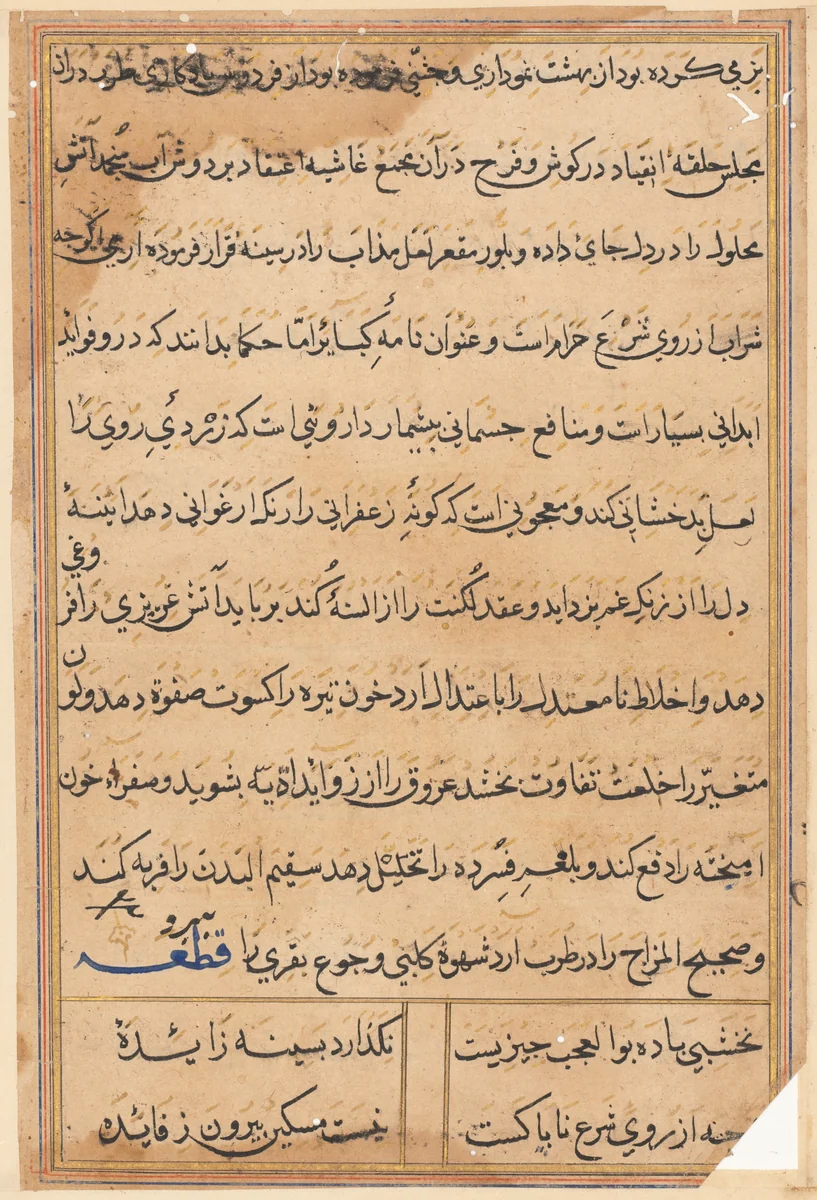 بزمي كرده بود از بهشت نموداري و جشني فرموده بود از فردوس يادكاري طرب در ان
مجلس حلقهٔ انقياد در كوش و فرح در آن مجمع غاشيه اعتقاد بر دوش آب منجمد آتش
محلول را در دل جاي داده و بلور مقعر لعل مذاب را در سينه قرار فرموده اري اكرچه
شراب از روي شرع حرام است و عنوان نامهٔ كباير امّا حكما بدانند كه درو فوايد
ابداني بسيار است و منافع جسماني بيشمار داروئي است كه زردئ روي را
لعل بدخشاني كند و معجوني است كه كونهٔ زعفراني را رنك ارغواني دهد اينهٔ
دل را از زنك غم بزدايد و عقد لكنت را از السنهٔ كند بربايد آتش غريزي را فروغي
دهد و اخلاط نامعتدل را باعتدال ارد خون تيره را كسوت صفوة دهد و لون
متغيّر را خلعت تفاوت بخشد عروق را از زوايد اديّه بشويد و صفراء خون
اميخته را دفع كند و بلغم فسرده را تحليل دهد سقيم البدن را فربه كند
و صحيح المزاج را در طرب ارد شهوة كلبي و جوع بقري را ببرد قطعه
نخشبي باده بوالعجب چيزيست نكذارد بسينه زائدهٔ
چه از روي شرع ناپاكست نيست مسكين بيرون ز فايده